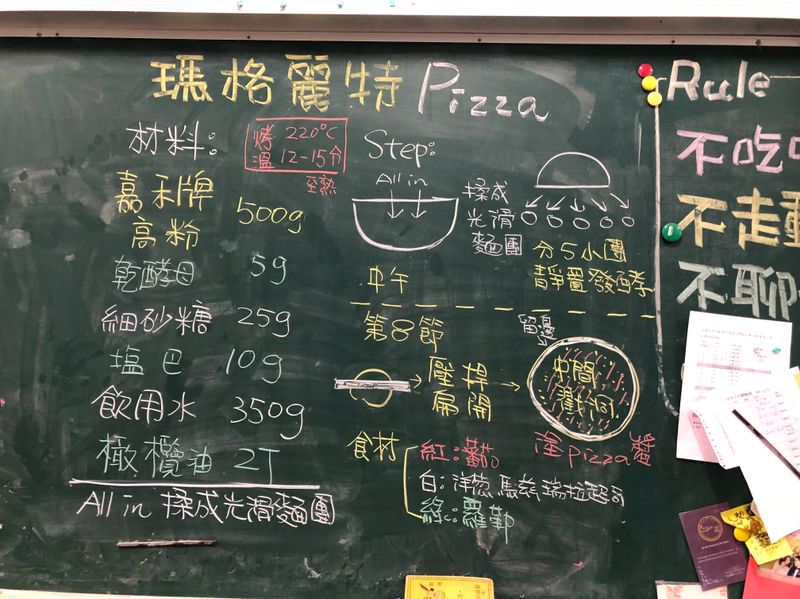 瑪格麗特 Pizza
材料:
烤溫 220°C
12-15分
至熟
嘉禾牌高粉 500g
乾酵母 5g
細砂糖 25g
塩巴 10g
飲用水 350g
橄欖油 2T
All in 揉成光滑麵團
Step:
All in
揉成
光滑
麵團
分5小團
靜置發酵
中午
第8節
壓扁
捍開
留邊
中間
戳洞
塗pizza醬
食材
紅:蕃茄
白:洋蔥、馬茲瑞拉起司
綠:羅勒
Rule
不吃
不走動
不聊